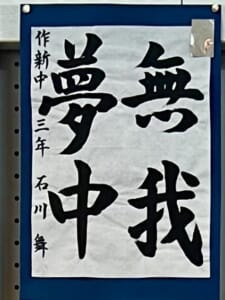 無我
夢中
作新中 三年 石川 舞